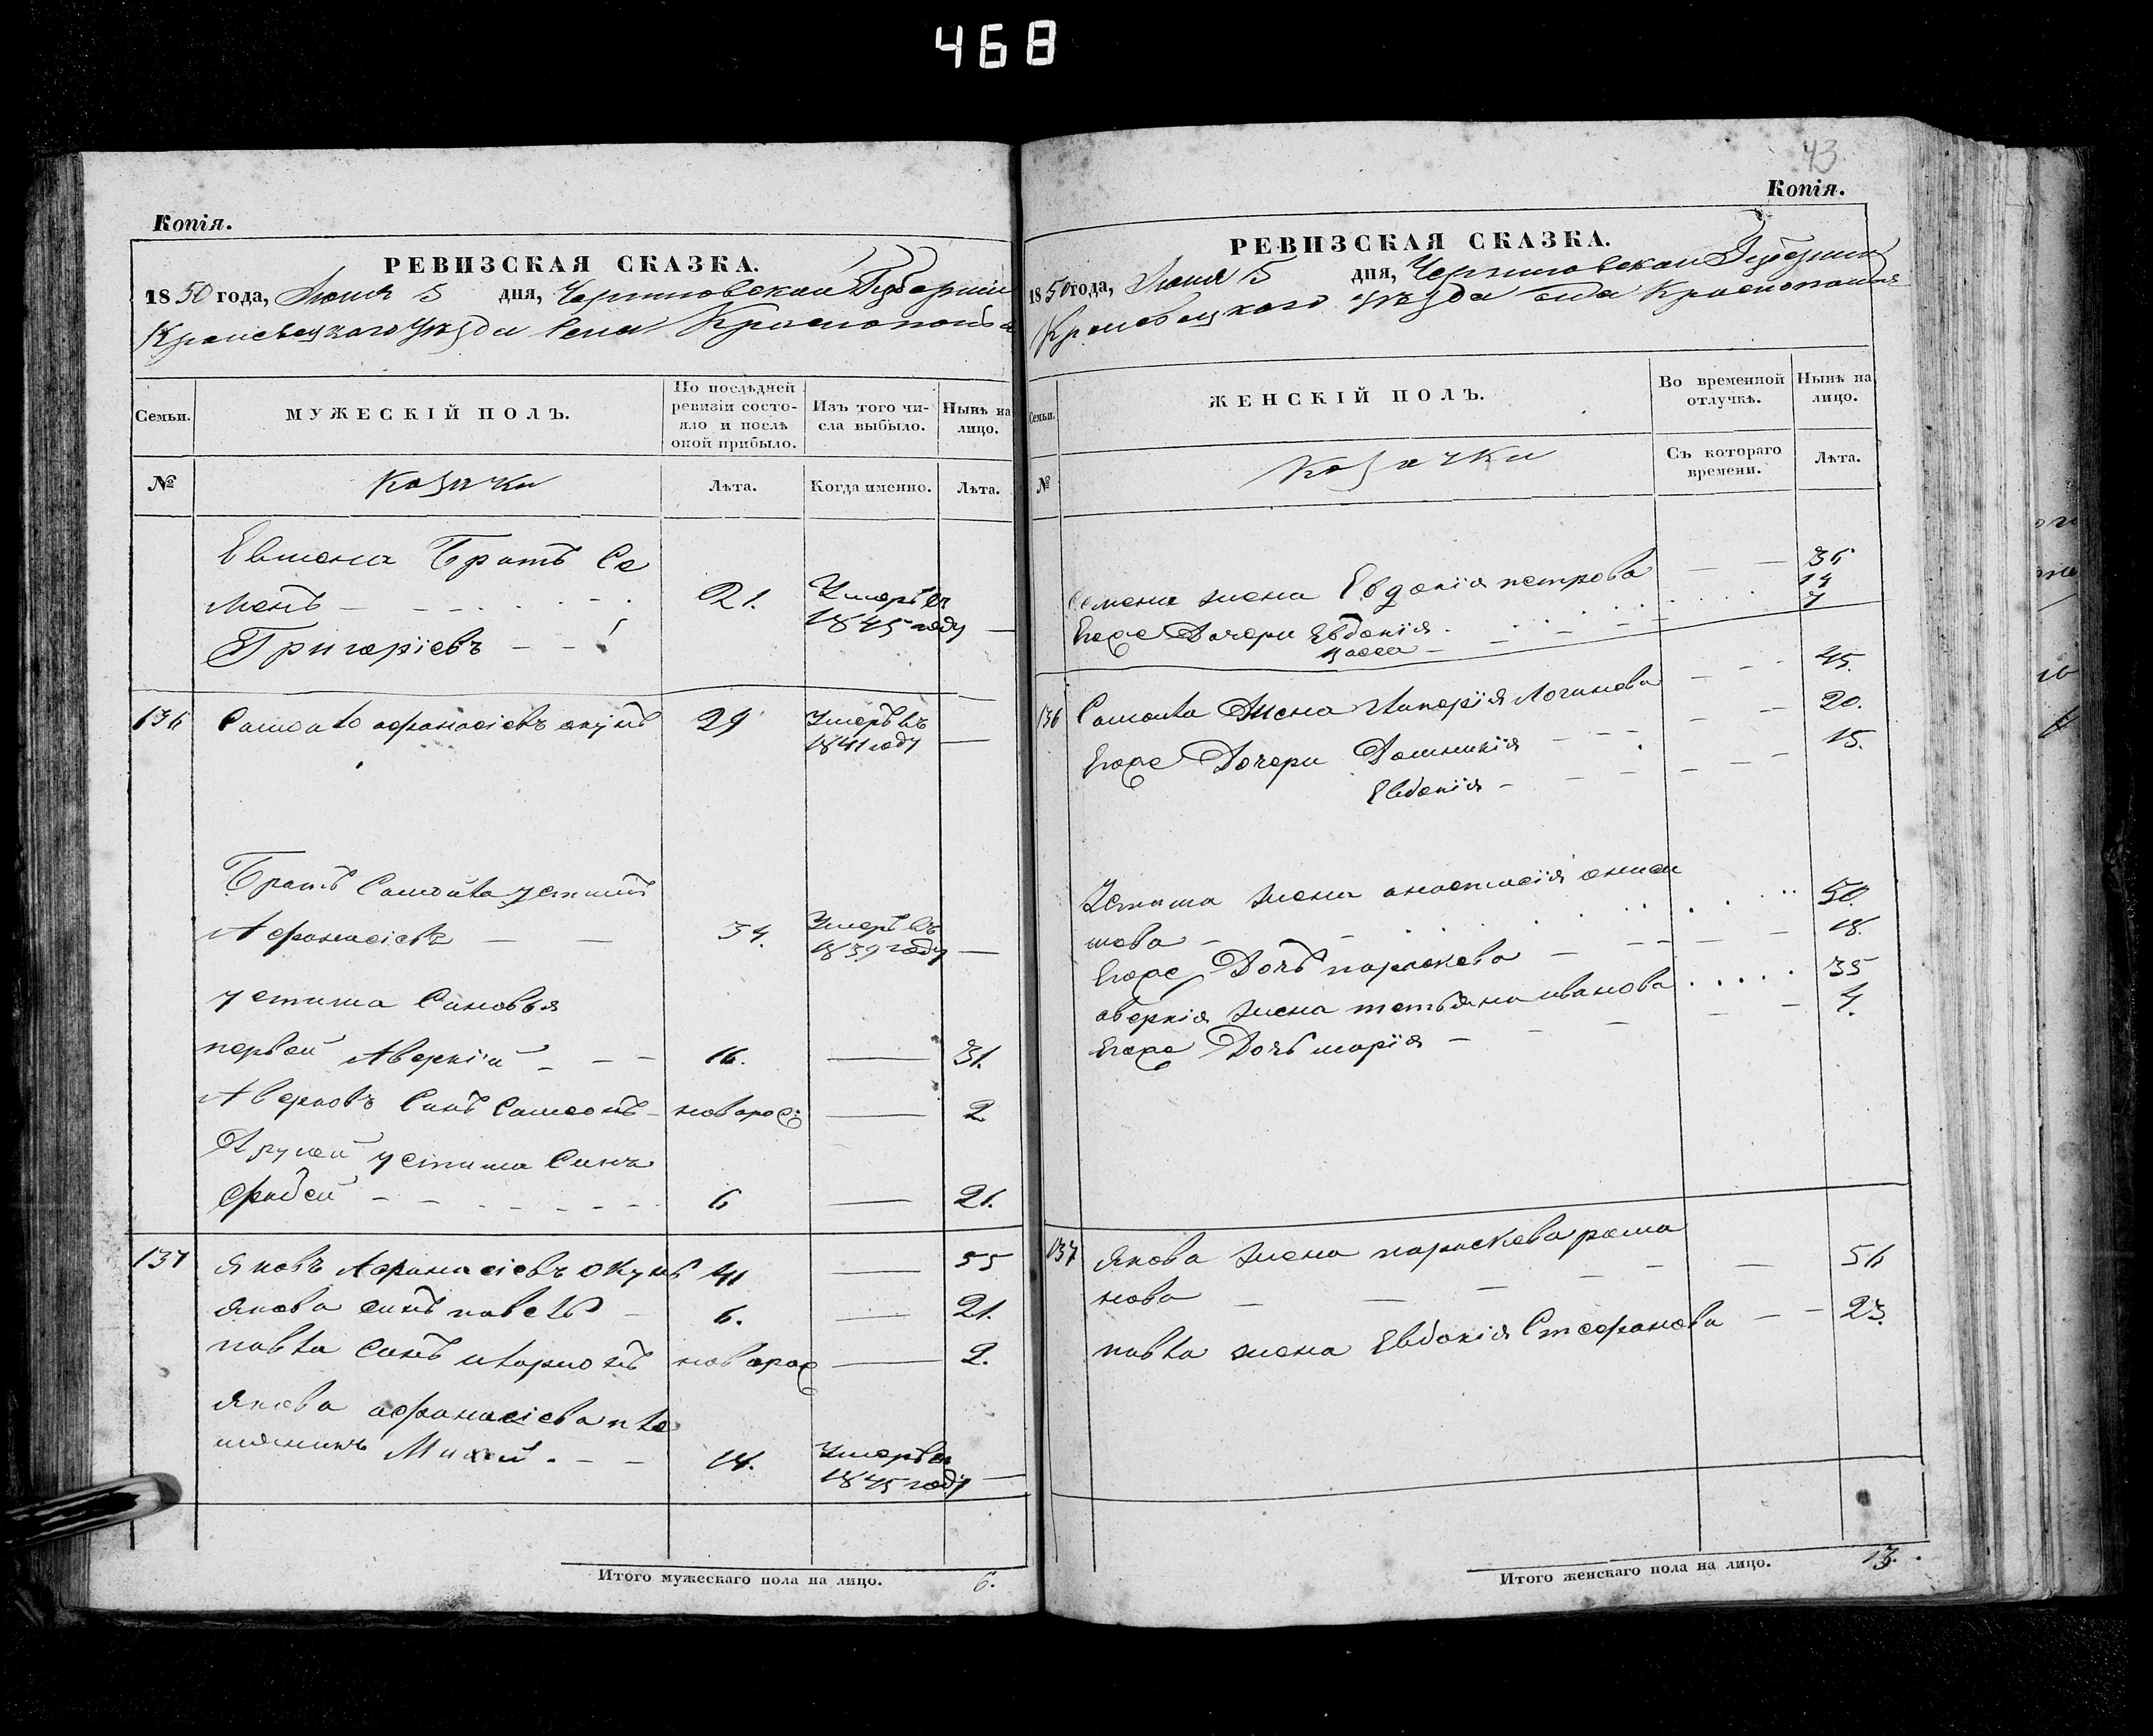 468
Копія.
РЕВИЗСКАЯ СКАЗКА.
1850 года, Июня 5 дня, Черниговской Губернии
Кролевецкаго уѣзда Села Краснополья
Семьи.
МУЖЕСКІЙ ПОЛЪ.
По послѣдней ревизіи состояло и послѣ оной прибыло.
Изъ того числа выбыло.
Нынѣ на лицо.
№
Козачки
Лѣта.
Когда именно.
Лѣта.
Евмена Братъ Се
менъ 21. Умеръ въ 1845 году —
Григоріевъ
136 Самойло Афанасіевъ 29 Умеръ въ 1841 году —
Братъ Самойла Устимъ
Афанасіевъ — — 34. Умеръ въ 1839 году —
Устима Сыновья
первой Аверкій — — 16. — 31.
Аверковъ Сынъ Самсонъ — новорож — 2
Другой Устима Сынъ
Фадей — — 6 — 21.
137 Яковъ Афанасіевъ Окунь 41 — 55
Якова сынъ Павелъ — 6. — 21.
Павла Сынъ Иларионъ новорож — 2.
Якова Афанасіева пле
мянникъ Михей. — — 14. Умеръ въ 1845 году —
Итого мужескаго пола на лицо. 6.
43
Копія.
РЕВИЗСКАЯ СКАЗКА.
1850 года, Июня 5 дня, Черниговской Губернии
Кролевецкаго уѣзда села Краснополья
Семьи.
ЖЕНСКІЙ ПОЛЪ.
Во временной отлучкѣ.
Нынѣ на лицо.
№
Козачки
Съ котораго времени.
Лѣта.
Семена жена Евдокія Петрова — — 36
Егоже Дочери Евдокія 14
7
136 Самойла Жена Гликерія Логинова — — 45.
Егоже Дочери Домникія — — 20.
Евдокія — 15.
Устима жена Анастасія Ониси
мова — 50.
Егоже Дочь Параскева — 18.
Аверкія жена Татьяна Иванова 35
Егоже Дочь Марія — 4.
137 Якова жена Параскева Рома
нова — — — 56
Павла жена Евдокія Стефанова — — 23.
Итого женскаго пола на лицо. 13.